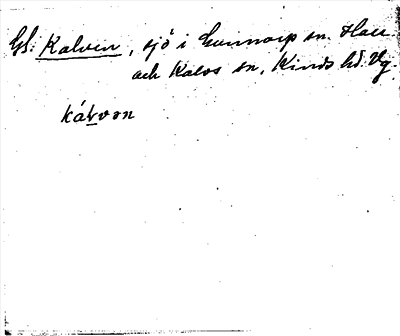 Gl. Kalven, sjö i Gunnarp sn. Hall
och Kalvs sn, Kinds hd. Vg.
kálvon